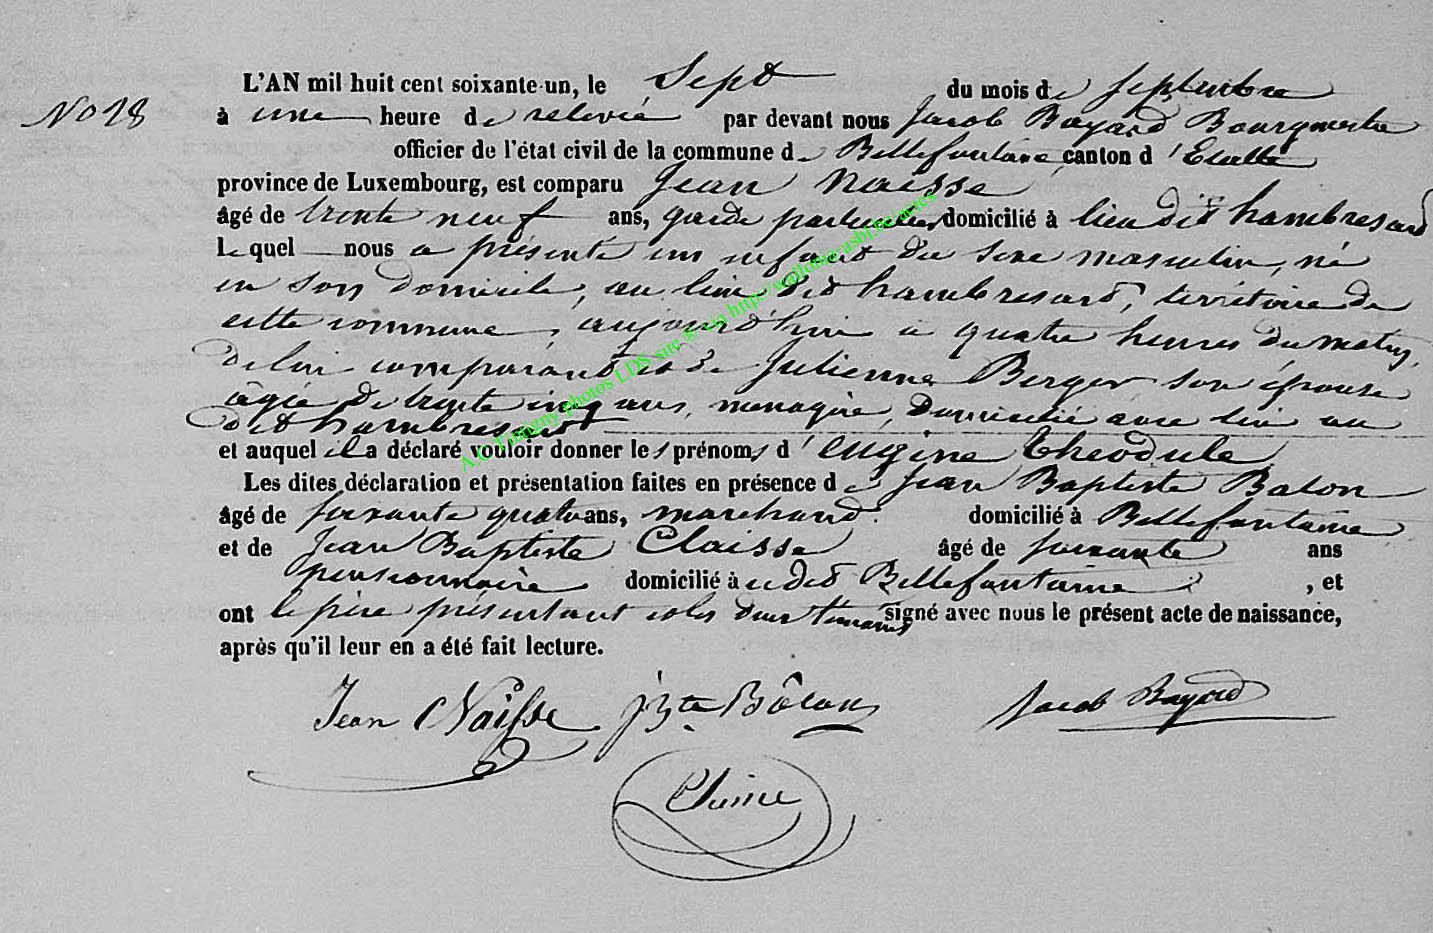 L'AN mil huit cent soixante-un, le Sept du mois de septembre
No 28
à une heure de relevée par devant nous Jacob Bayard Bourgmestre
officier de l'état civil de la commune de Bellefontaine, canton d'Etalle
province de Luxembourg, est comparu Jean Naisse
âgé de trente neuf ans, garde particulier domicilié à lieu dit hambresard
Lequel nous a présenté un enfant du sexe masculin, né
en son domicile, au lieu dit hambresard, territoire de
cette commune, aujourd'hui à quatre heures du matin,
de lui comparant et de Julienne Berger son épouse
âgée de trente cinq ans, menagère, domiciliée avec lui au
dit hambresart
et auquel il a déclaré vouloir donner les prénoms d'eugène théodule
Les dites déclaration et présentation faites en présence de Jean Baptiste Balon
âgé de soixante quatre ans, marchand domicilié à Bellefontaine
et de Jean Baptiste Claisse âgé de soixante ans
pensionnaire domicilié à edit Bellefontaine, et
ont le père présentant et les deux témoins signé avec nous le présent acte de naissance,
après qu'il leur en a été fait lecture.
Jean Naisse jBte Bâlon Jacob Bayard
Claisse
photos LDS site & via http://walloniasbl.be/actes